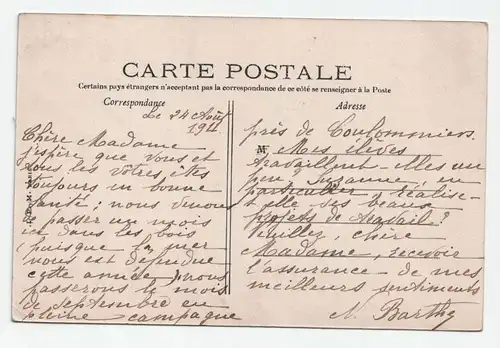 CARTE POSTALE
Certains pays étrangers n'acceptant pas la correspondance de ce côté se renseigner à la Poste
Correspondance
Le 24 Août
1911
Chère Madame
j'espère que vous et
tous les vôtres, êtes
toujours en bonne
santé; nous venons
de passer un mois
ici dans les bois
(puisque la mer
nous est défendue
cette année,) nous
passerons le mois
de septembre en
pleine campagne
Adresse
près de Coulommiers.
M
Mes élèves
travaillent-elles un
peu, Suzanne, en
particulier, réalise-
t-elle des beaux
projets de travail?
Veuillez, chère
Madame, recevoir
l'assurance de mes
meilleurs sentiments
N. Barthy